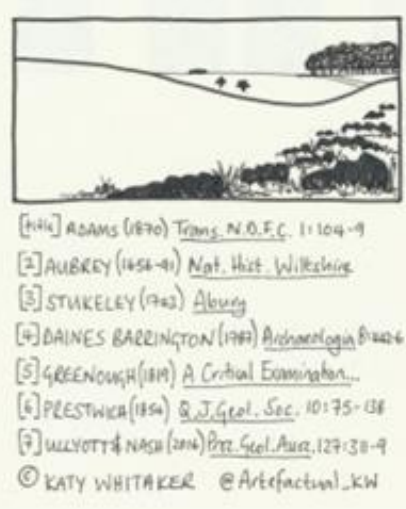 [title] ADAMS (1870) Trans. N.D.F.C. 1:104-9
[2] AUBREY (1656-91) Nat. Hist. Wiltshire
[3] STUKELEY (1743) Abury
[4] DAINES BARRINGTON (1787) Archaeologia 8:442-6
[5] GREENOUGH (1819) A Critical Examination...
[6] PRESTWICH (1854) Q.J. Geol. Soc. 10:75-138
[7] ULLYOTT & NASH (2016) Proc. Geol. Assoc. 127:
© KATY WHITAKER @Artefactual_KW